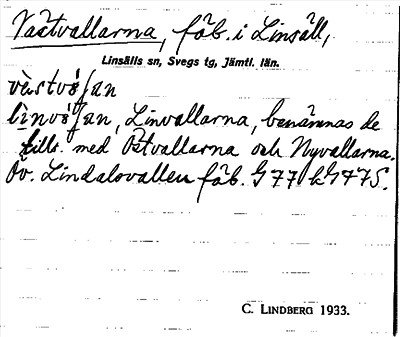 Västvallarna, fäb. i Linsäll,
Linsälls sn, Svegs tg, Jämtl. län.
Linvallarna, benämnas de
tills. med Östvallarna och Nyvallarna.
Öv. Lindalsvallen fäb. G 77
C. LINDBERG 1933.